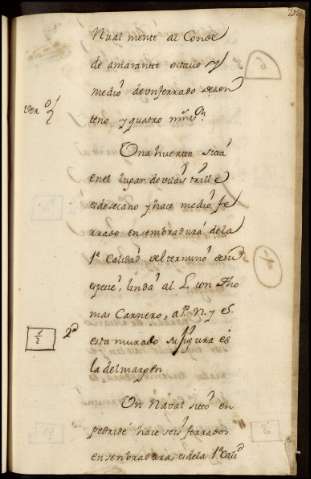 Nual mente al Conde
de amarante octavo y
medio de un ferrado de
teno y quatro mrs
Una huerta sita
en el lugar de
es de secano y hace medio fe
rrado en sembradura de la
1ª Calidad del termino de su
especie, linda al L. con Tho
mas Carnero, al P. N. y es
esta murado su figura es
la del margen
Un Naval sito en
hace seis ferrados
en sembradura, es de la 1ª Calid